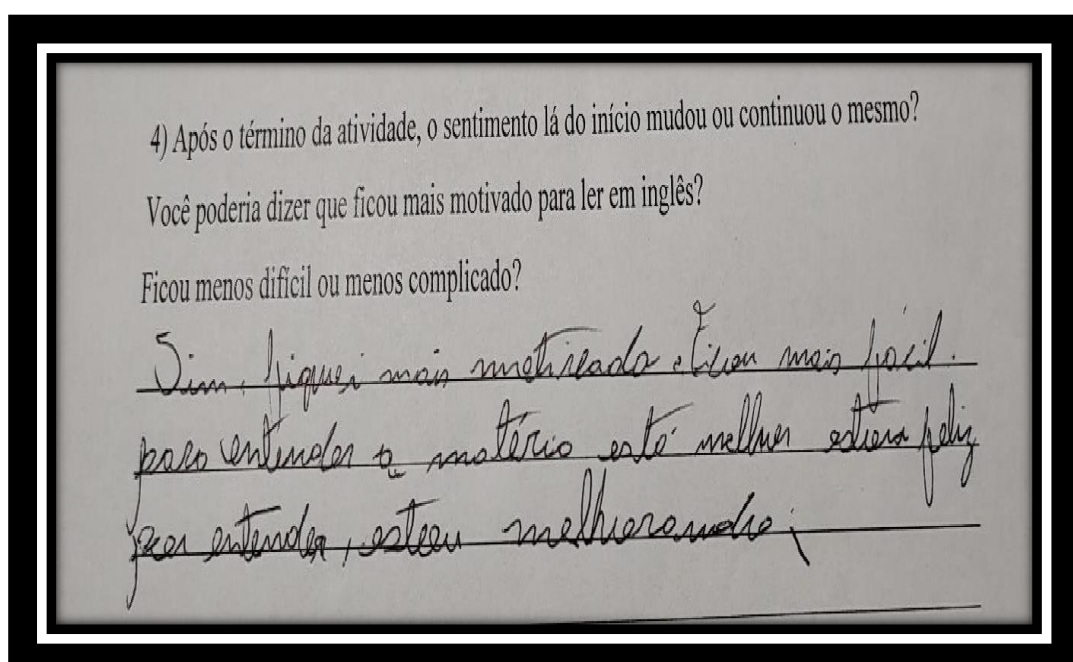 4) Após o término da atividade, o sentimento lá do início mudou ou continuou o mesmo?
Você poderia dizer que ficou mais motivado para ler em inglês?
Ficou menos difícil ou menos complicado?
Sim, fiquei mais motivado. Ficou mais fácil.
para entender a matéria está melhor estou feliz
por entender, estou melhorando;